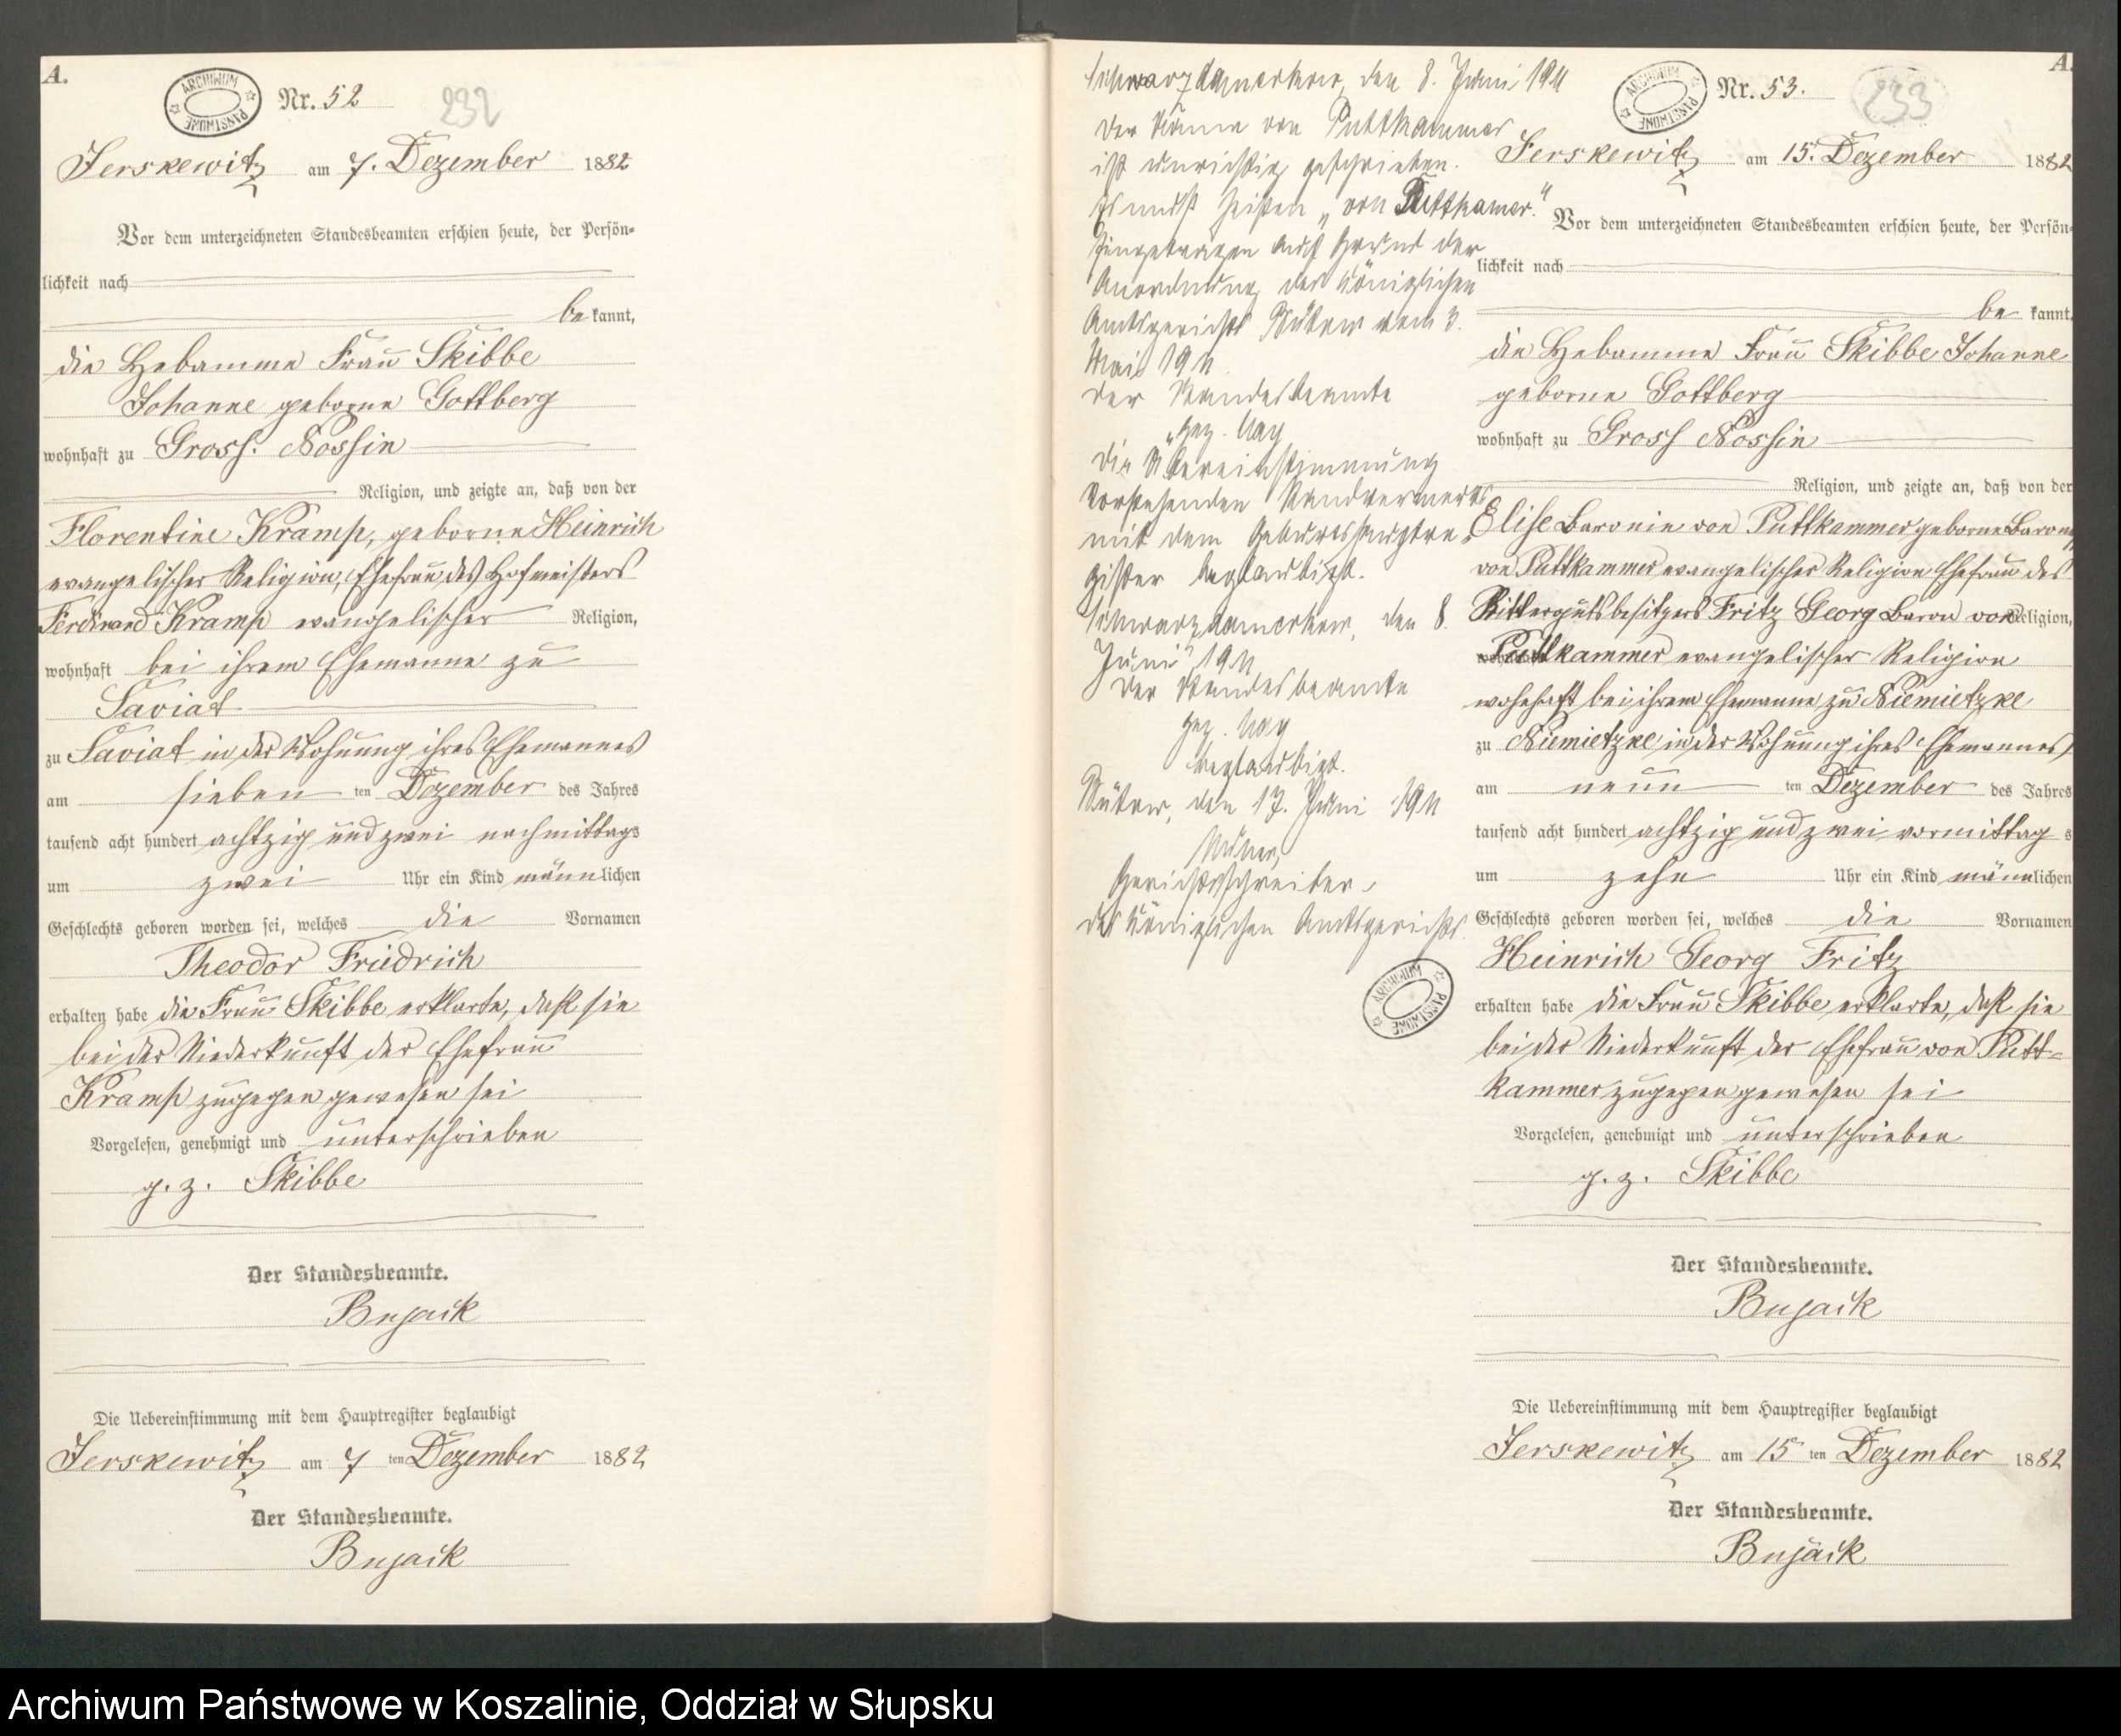 A.
ARCHIWUM PAŃSTWOWE
Nr. 52
232
Jerskewitz am 7. Dezember 1882
Vor dem unterzeichneten Standesbeamten erschien heute, der Persön=
lichkeit nach
be kannt,
die Hebamme Frau Skibbe
Johanne geborne Gottberg
wohnhaft zu Gross. Nossin
Religion, und zeigte an, daß von der
Florentine Kramp, geborne Heinrich
evangelischer Religion, Ehefrau des Hofmeisters
Ferdinand Kramp evangelischer Religion,
wohnhaft bei ihrem Ehemanne zu
Saviat
zu Saviat in der Wohnung ihres Ehemannes
am sieben ten Dezember des Jahres
tausend acht hundert achtzig und zwei nachmittags
um zwei Uhr ein Kind männlichen
Geschlechts geboren worden sei, welches die Vornamen
Theodor Friedrich
erhalten habe die Frau Skibbe erklarte, daß sie
bei der Niederkunft der Ehefrau
Kramp zugegen gewesen sei
Vorgelesen, genehmigt und unterschrieben
g. z. Skibbe
Der Standesbeamte.
Bujack
Die Uebereinstimmung mit dem Hauptregister beglaubigt
Jerskewitz am 7 ten Dezember 1882
Der Standesbeamte.
Bujack
Schwarzdamerkow, den 8. Juni 1911
Der Name von Puttkammer
ist unrichtig geschrieben.
Es muß heißen „von Puttkamer."
Eingetragen auf Grund der
Anordnung des Königlichen
Amtsgerichts Bütow vom 3.
Mai 1911.
Der Standesbeamte
„gez. Nay
Die Übereinstimmung
vorstehenden Randvermerks
mit dem Geburtshauptre-
gister beglaubigt.
Schwarzdamerkow, den 8.
Juni 1911
Der Standesbeamte
gez. Nay
beglaubigt.
Bütow, den 17. Juni 1911
Gerichtsschreiber
des Königlichen Amtsgerichts.
ARCHIWUM PAŃSTWOWE
A.
ARCHIWUM PAŃSTWOWE
Nr. 53.
233
Jerskewitz am 15. Dezember 1882
Vor dem unterzeichneten Standesbeamten erschien heute, der Persön=
lichkeit nach
be kannt,
die Hebamme Frau Skibbe Johanne
geborne Gottberg
wohnhaft zu Gross Nossin
Religion, und zeigte an, daß von der
Elise Baronin von Puttkammer geborne Baronin
von Puttkammer evangelischer Religion Ehefrau des
Rittergutsbesitzers Fritz Georg Baron von Religion,
Puttkammer evangelischer Religion
wohnhaft bei ihrem Ehemanne zu Niemietzke
zu Niemietzke in der Wohnung ihres Ehemannes
am neun ten Dezember des Jahres
tausend acht hundert achtzig und zwei vormittag s
um zehn Uhr ein Kind männlichen
Geschlechts geboren worden sei, welches die Vornamen
Heinrich Georg Fritz
erhalten habe die Frau Skibbe erklarte, daß sie
bei der Niederkunft der Ehefrau von Putt=
kammer zugegen gewesen sei
Vorgelesen, genehmigt und unterschrieben
g. z. Skibbe
Der Standesbeamte.
Bujack
Die Uebereinstimmung mit dem Hauptregister beglaubigt
Jerskewitz am 15 ten Dezember 1882
Der Standesbeamte.
Bujack
Archiwum Państwowe w Koszalinie, Oddział w Słupsku